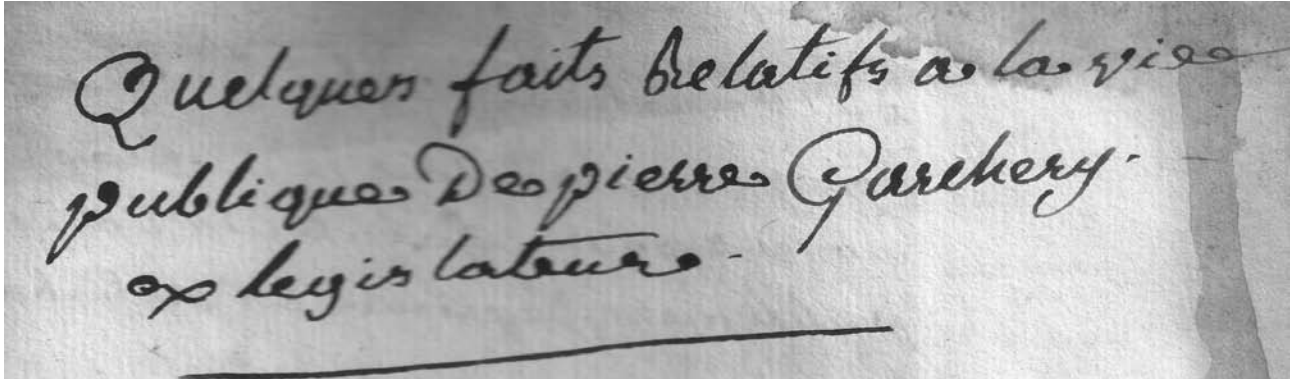 Quelques faits Relatifs a la vie
publique De pierre Garchery.
ex legislateur.